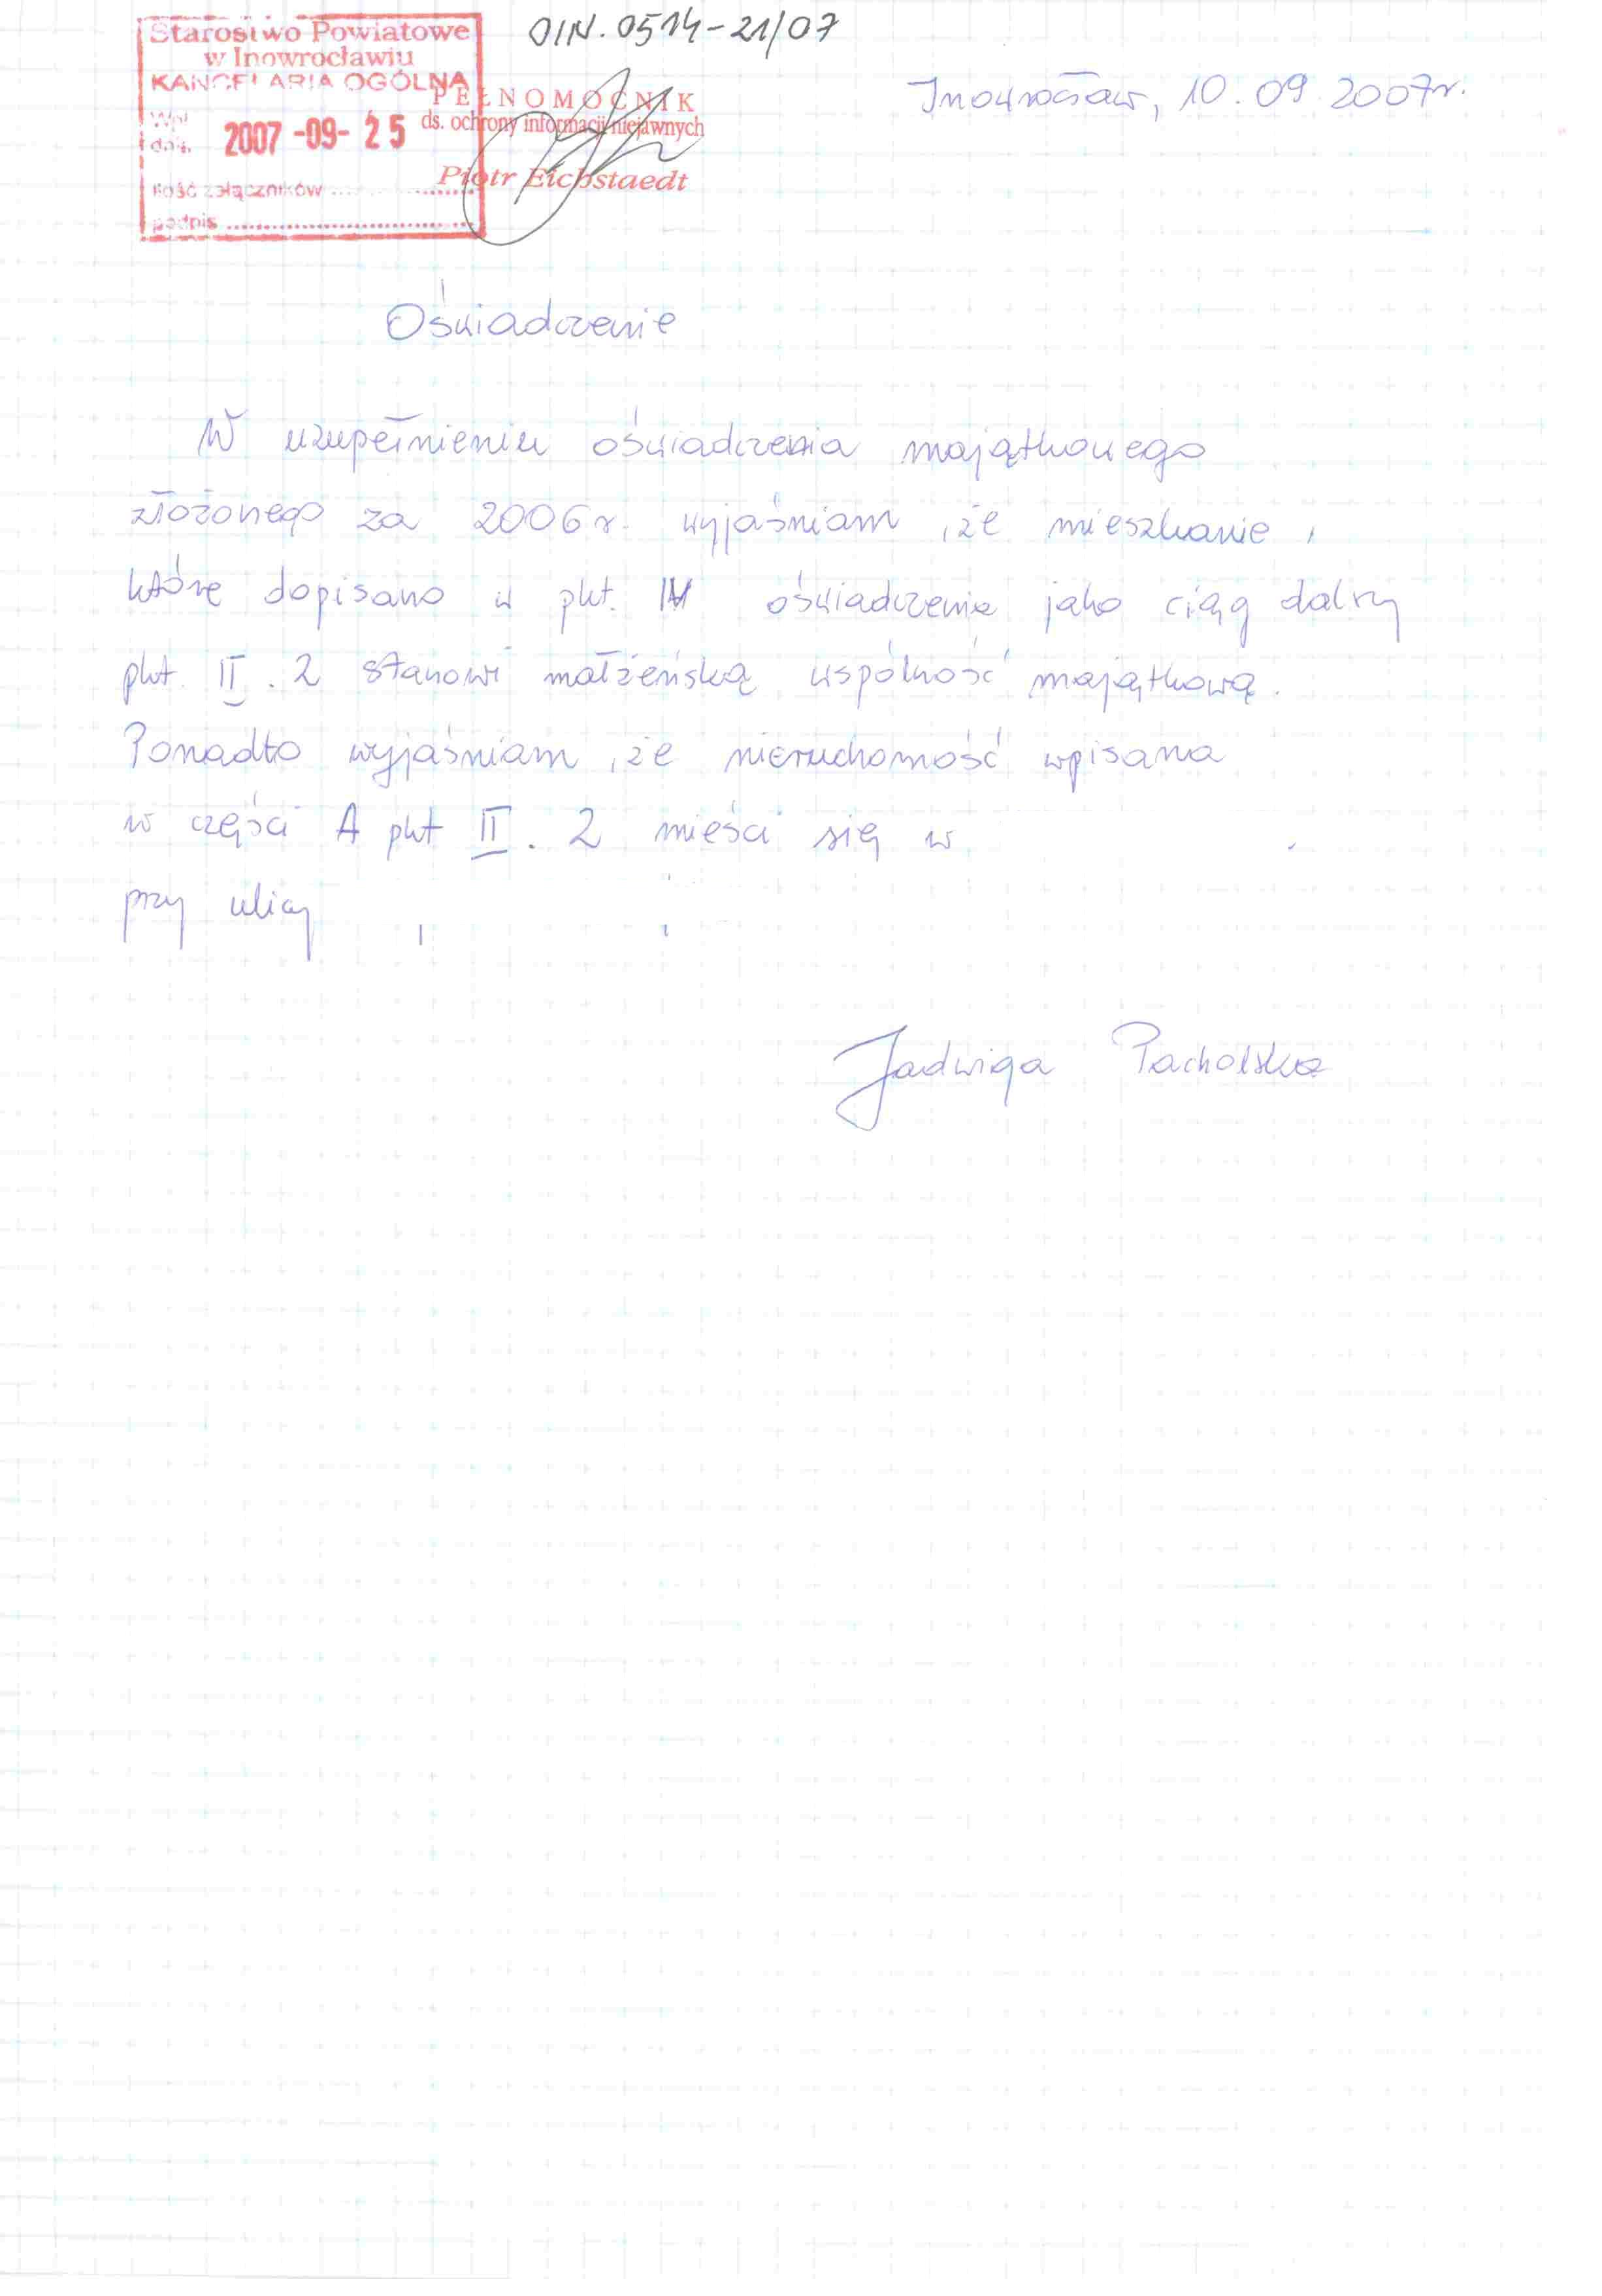 OIN. 0514-21/07
Starostwo Powiatowe
w Inowrocławiu
KANCELARIA OGÓLNA
Wpł.
dn.
2007 -09- 25
Ilość załączników
podpis
PEŁNOMOCNIK
ds. ochrony informacji niejawnych
Piotr Eichstaedt
Inowrocław, 10.09.2007r.
Oświadczenie
W uzupełnieniu oświadczenia majątkowego
złożonego za 2006r. wyjaśniam, że mieszkanie,
które dopisano w pkt. oświadczenia jako ciąg dalszy
pkt. II. 2 stanowi małżeńską wspólność majątkową.
Ponadto wyjaśniam, że nieruchomość wpisana
w części A pkt II. 2 mieści się w
przy ulicy
Jadwiga Pacholska